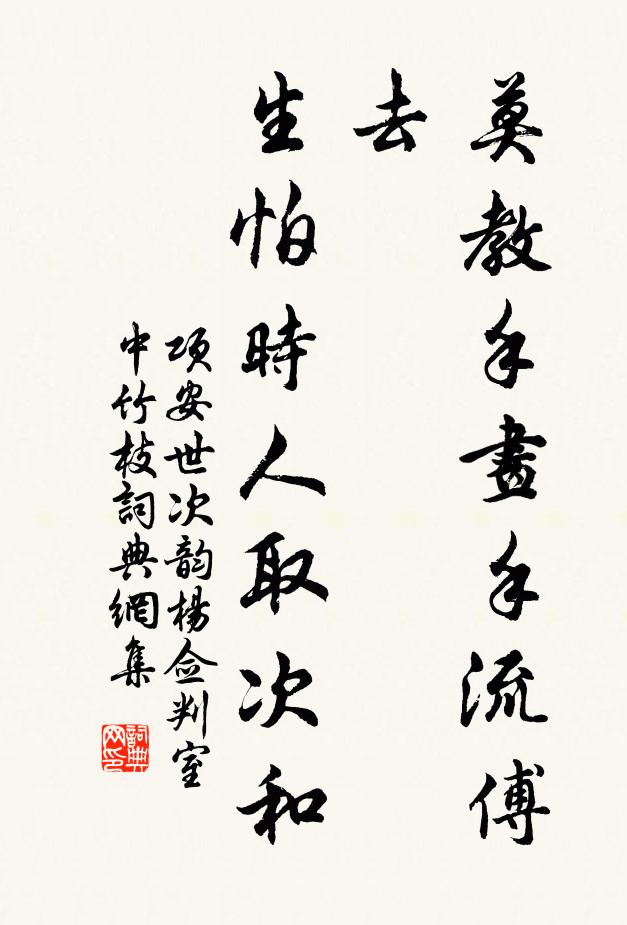 莫教手畫手流傳
去
生怕時人取次和
項安世次韵楊僉判室
中竹枝詞典網集
詞典网印